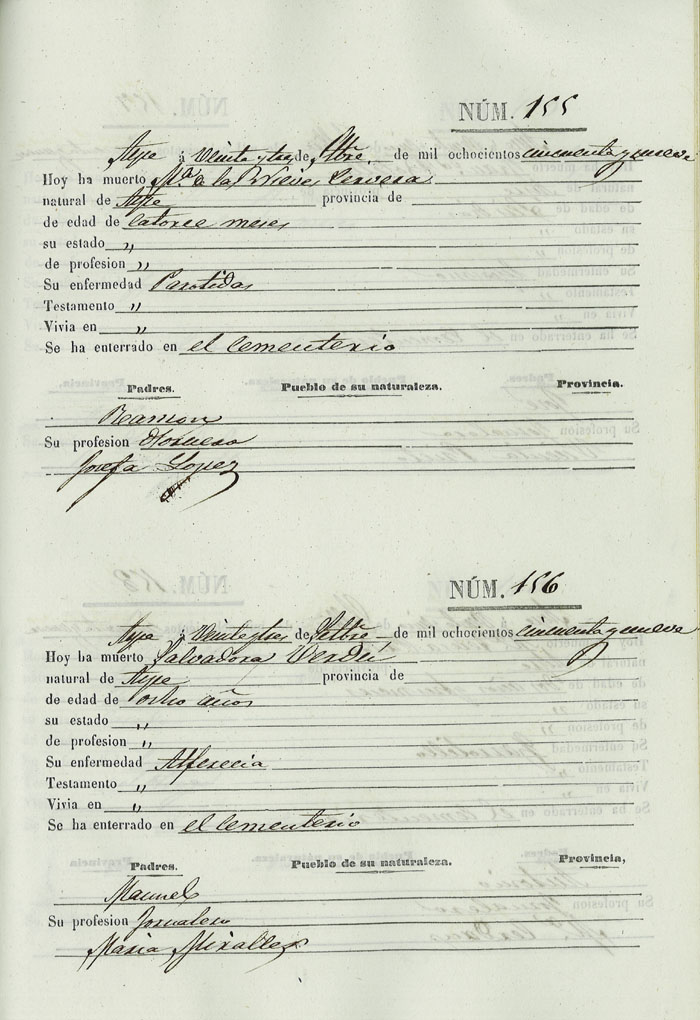 NÚM. 155
Aspe á Veinte y tres de Stbre. de mil ochocientos cincuenta y nueve
Hoy ha muerto Mª. de las Nieves Cervera
natural de Aspe provincia de
de edad de Catorce meses
su estado "
de profesion "
Su enfermedad Parotidas
Testamento "
Vivia en "
Se ha enterrado en el Cementerio
Padres. Pueblo de su naturaleza. Provincia.
Ramon
Su profesion
Josefa Lopez
NÚM. 156
Aspe á Veinte y tres de Setbre de mil ochocientos cincuenta y nueve
Hoy ha muerto Salvadora Verdú
natural de Aspe provincia de
de edad de ocho años
su estado "
de profesion "
Su enfermedad Alferecia
Testamento "
Vivia en "
Se ha enterrado en el Cementerio
Padres. Pueblo de su naturaleza. Provincia,
Manuel
Su profesion Jornalero
Maria Miralles